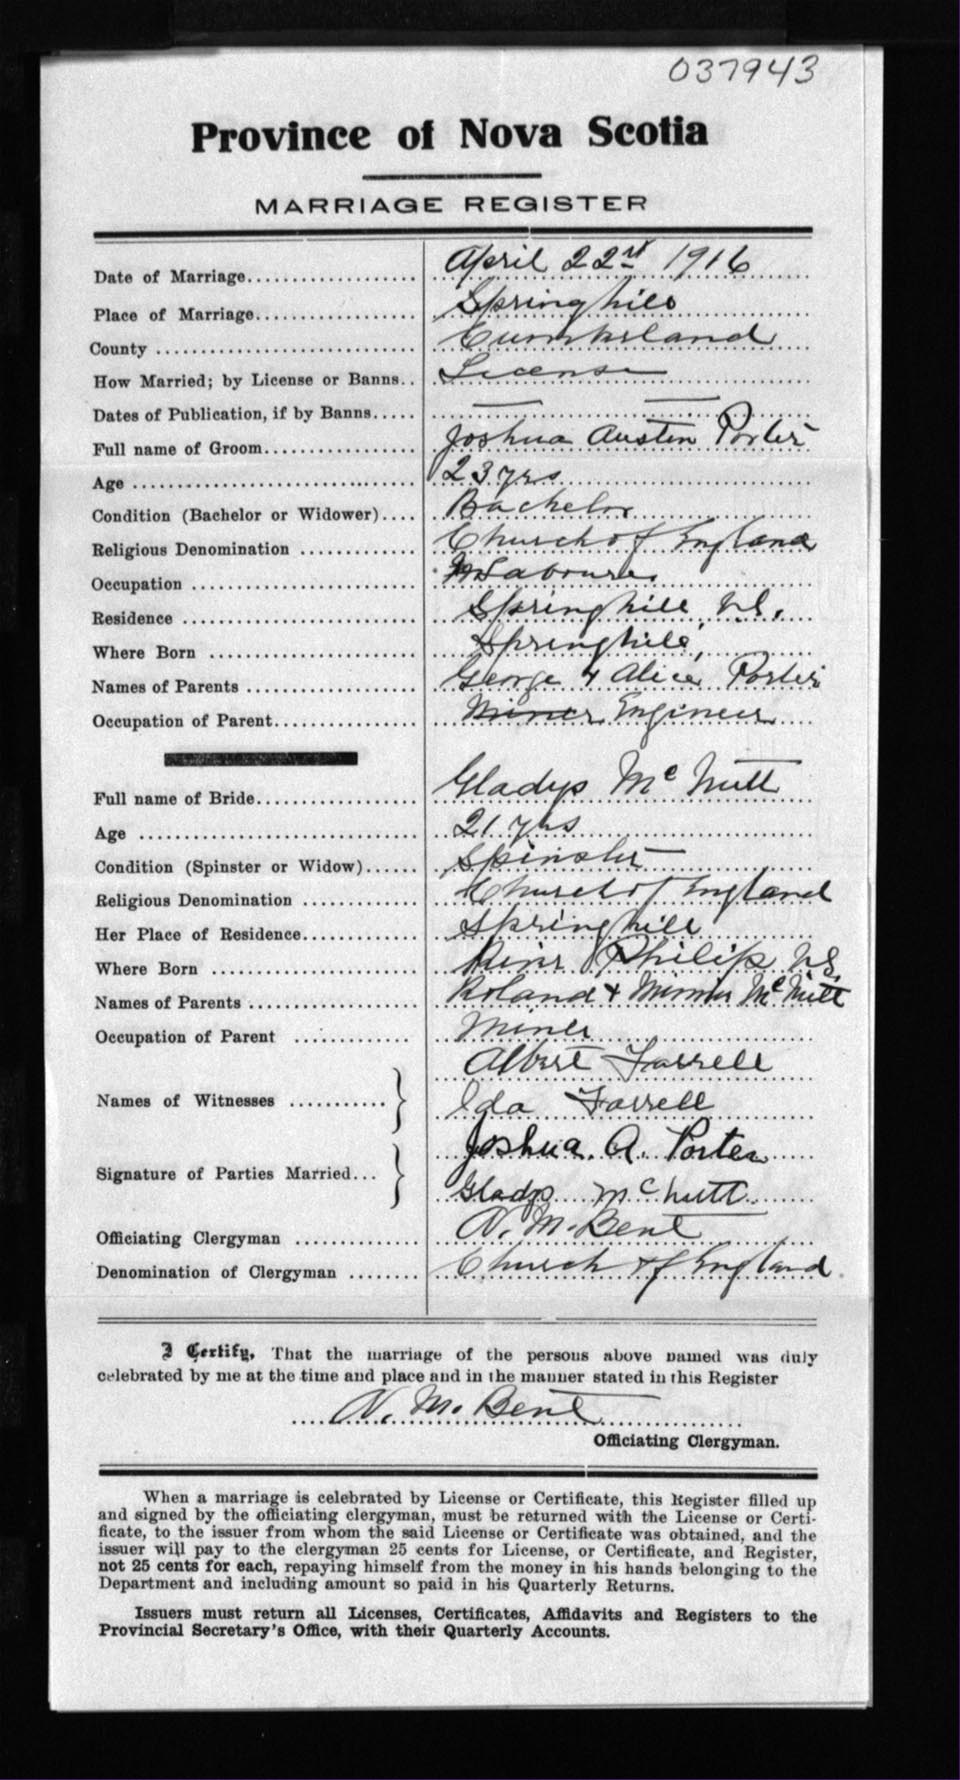 037943
Province of Nova Scotia
MARRIAGE REGISTER
Date of Marriage April 22nd 1916
Place of Marriage Springhill
County Cumberland
How Married; by License or Banns License
Dates of Publication, if by Banns — —
Full name of Groom Joshua Austin Porter
Age 23 yrs
Condition (Bachelor or Widower) Bachelor
Religious Denomination Church of England
Occupation Labourer
Residence Springhill, N.S.
Where Born Springhill,
Names of Parents George & Alice Porter
Occupation of Parent Miner Engineer
Full name of Bride Gladys McNutt
Age 21 yrs
Condition (Spinster or Widow) Spinster
Religious Denomination Church of England
Her Place of Residence Springhill
Where Born River Philip N.S.
Names of Parents Roland & Minnie McNutt
Occupation of Parent Miner
Albert Farrell
Names of Witnesses Ida Farrell
Joshua. A. Porter
Signature of Parties Married Gladys McNutt
Officiating Clergyman N. M. Bent
Denomination of Clergyman Church of England
I Certify, That the marriage of the persons above named was duly
celebrated by me at the time and place and in the manner stated in this Register
N. M. Bent
Officiating Clergyman.
When a marriage is celebrated by License or Certificate, this Register filled up
and signed by the officiating clergyman, must be returned with the License or Certi-
ficate, to the issuer from whom the said License or Certificate was obtained, and the
issuer will pay to the clergyman 25 cents for License, or Certificate, and Register,
not 25 cents for each, repaying himself from the money in his hands belonging to the
Department and including amount so paid in his Quarterly Returns.
Issuers must return all Licenses, Certificates, Affidavits and Registers to the
Provincial Secretary's Office, with their Quarterly Accounts.